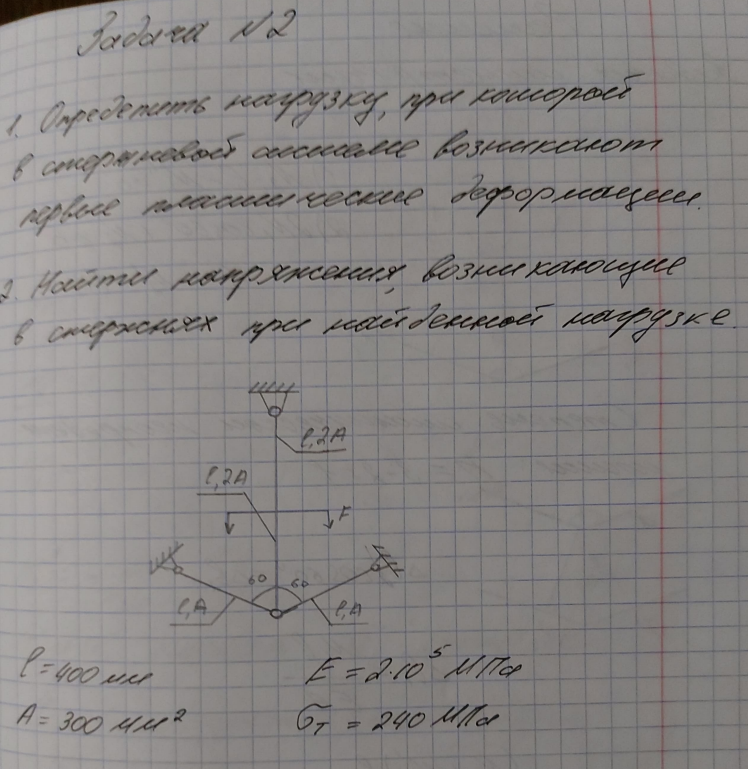 Задача N2
1. Определить нагрузку, при которой
в стержневой системе возникают
первые пластические деформации.
2. Найти напряжения, возникающие
в стержнях при найденной нагрузке.
l,2A
l,2A
F
60 60
l,A l,A
l=400 мм E=2·10⁵ МПа
A=300 мм² σт=240 МПа